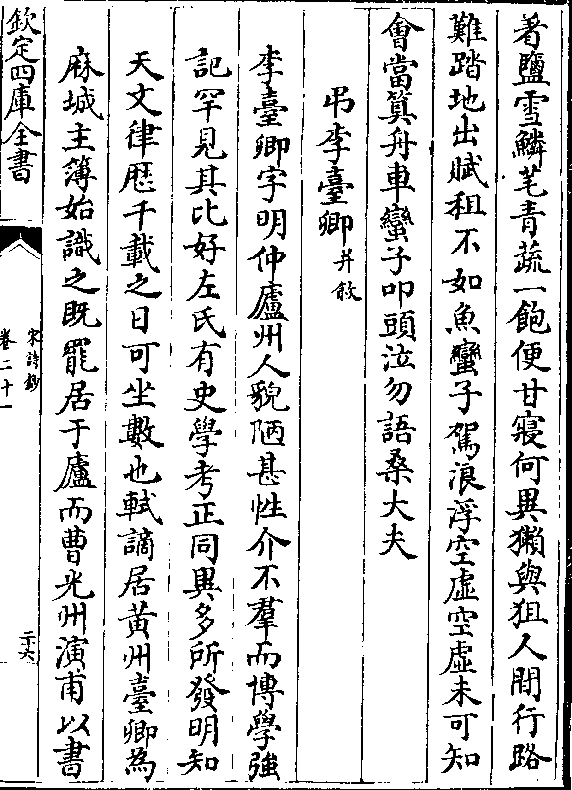 著鹽雪鱗芼青蔬一飽便甘寢何異獺與狙人間行路
難踏地出賦租不如魚蠻子駕浪浮空虛空虛未可知
會當算舟車蠻子叩頭泣勿語桑大夫
弔李臺卿并敘
李臺卿字明仲廬州人貌陋甚性介不羣而博學強
記罕見其比好左氏有史學考正同異多所發明知
天文律厯千載之日可坐數也軾謫居黃州臺卿為
麻城主簿始識之既罷居于廬而曹光州演甫以書
欽定四庫全書
宋詩鈔
卷二十一
二六